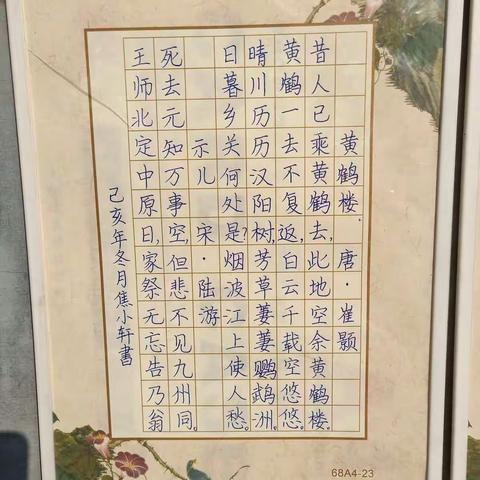 黄鹤楼. 唐·崔颢
昔人已乘黄鹤去,此地空余黄鹤楼。
黄鹤一去不复返,白云千载空悠悠。
晴川历历汉阳树,芳草萋萋鹦鹉洲。
日暮乡关何处是?烟波江上使人愁。
示儿 宋·陆游
死去元知万事空,但悲不见九州同。
王师北定中原日,家祭无忘告乃翁。
己亥年冬月焦小轩書
68A4-23